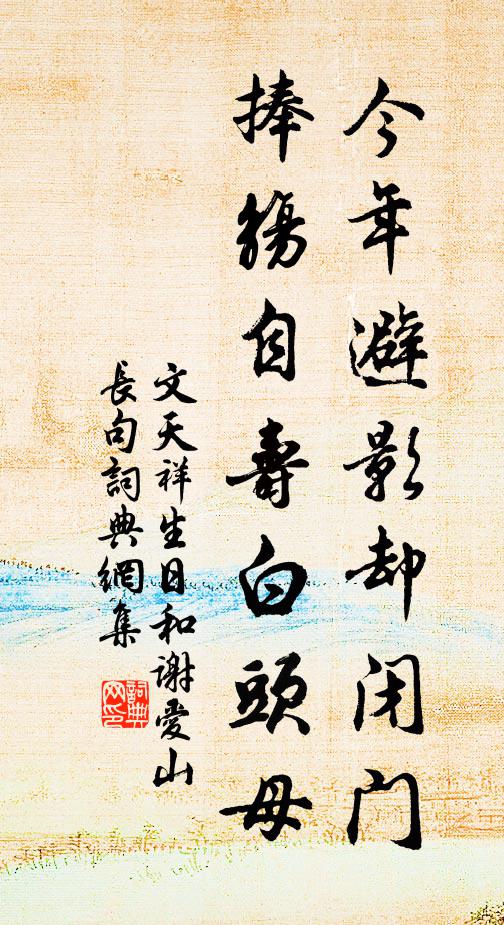 今年避影却闭门
捧觞自壽白頭母
文天祥生日和謝愛山
長句詞典網集
詞典网印